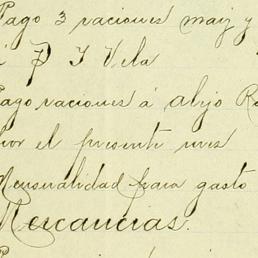 Pago 3 raciones maiz y
P Y Vela
Pago raciones á alijo R
por el presente mes
Mensualidad para gasto
Mercancias.